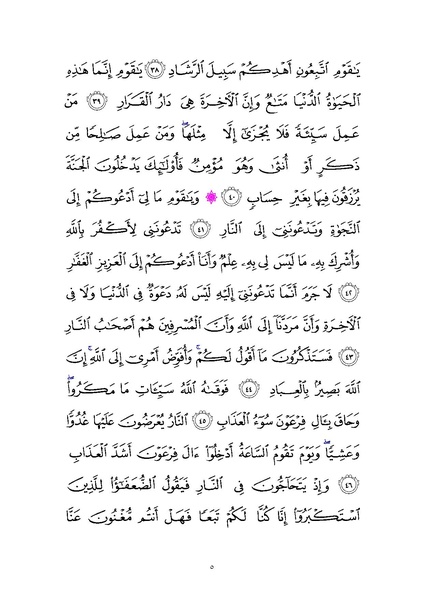 يَٰقَوْمِ ٱتَّبِعُونِ أَهْدِكُمْ سَبِيلَ ٱلرَّشَادِ ٣٨ يَٰقَوْمِ إِنَّمَا هَٰذِهِ
ٱلْحَيَوٰةُ ٱلدُّنْيَا مَتَٰعٌ وَإِنَّ ٱلْءَاخِرَةَ هِىَ دَارُ ٱلْقَرَارِ ٣٩ مَنْ
عَمِلَ سَيِّئَةً فَلَا يُجْزَىٰٓ إِلَّا مِثْلَهَا ۖ وَمَنْ عَمِلَ صَٰلِحًا مِّن
ذَكَرٍ أَوْ أُنثَىٰ وَهُوَ مُؤْمِنٌ فَأُو۟لَٰٓئِكَ يَدْخُلُونَ ٱلْجَنَّةَ
يُرْزَقُونَ فِيهَا بِغَيْرِ حِسَابٍ ٤٠ ۞ وَيَٰقَوْمِ مَا لِىٓ أَدْعُوكُمْ إِلَى
ٱلنَّجَوٰةِ وَتَدْعُونَنِىٓ إِلَى ٱلنَّارِ ٤١ تَدْعُونَنِى لِأَكْفُرَ بِٱللَّهِ
وَأُشْرِكَ بِهِۦ مَا لَيْسَ لِى بِهِۦ عِلْمٌ وَأَنَا۠ أَدْعُوكُمْ إِلَى ٱلْعَزِيزِ ٱلْغَفَّٰرِ
٤٢ لَا جَرَمَ أَنَّمَا تَدْعُونَنِىٓ إِلَيْهِ لَيْسَ لَهُۥ دَعْوَةٌ فِى ٱلدُّنْيَا وَلَا فِى
ٱلْءَاخِرَةِ وَأَنَّ مَرَدَّنَآ إِلَى ٱللَّهِ وَأَنَّ ٱلْمُسْرِفِينَ هُمْ أَصْحَٰبُ ٱلنَّارِ
٤٣ فَسَتَذْكُرُونَ مَآ أَقُولُ لَكُمْ ۚ وَأُفَوِّضُ أَمْرِىٓ إِلَى ٱللَّهِ ۚ إِنَّ
ٱللَّهَ بَصِيرٌۢ بِٱلْعِبَادِ ٤٤ فَوَقَىٰهُ ٱللَّهُ سَيِّـَٔاتِ مَا مَكَرُوا۟ ۖ
وَحَاقَ بِـَٔالِ فِرْعَوْنَ سُوٓءُ ٱلْعَذَابِ ٤٥ ٱلنَّارُ يُعْرَضُونَ عَلَيْهَا غُدُوًّا
وَعَشِيًّا ۖ وَيَوْمَ تَقُومُ ٱلسَّاعَةُ أَدْخِلُوٓا۟ ءَالَ فِرْعَوْنَ أَشَدَّ ٱلْعَذَابِ
٤٦ وَإِذْ يَتَحَآجُّونَ فِى ٱلنَّارِ فَيَقُولُ ٱلضُّعَفَٰٓؤُا۟ لِلَّذِينَ
ٱسْتَكْبَرُوٓا۟ إِنَّا كُنَّا لَكُمْ تَبَعًا فَهَلْ أَنتُم مُّغْنُونَ عَنَّا
٥